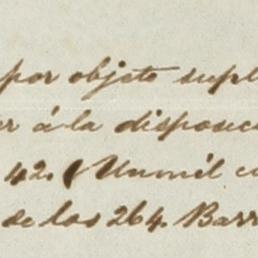 por objeto supl
er á la disposic
42. Unmil c
de los 264. Barr